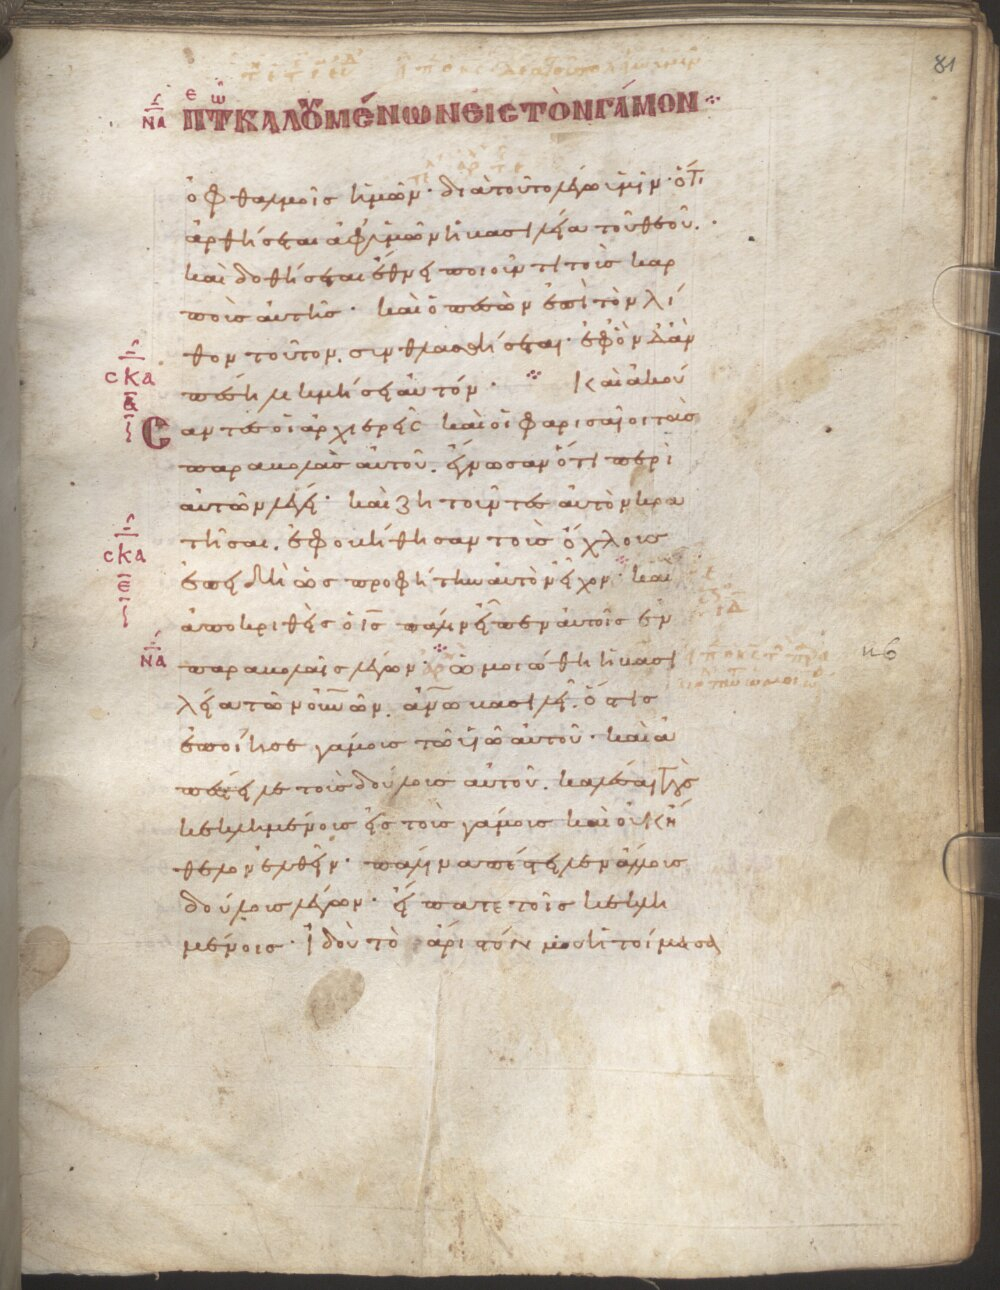 81
ΝΑ ΠΕΡΙ ΤΩΝ ΚΑΛΟΥΜΕΝΩΝ ΕΙΣ ΤΟΝ ΓΑΜΟΝ
ὀφθαλμοῖς ἡμῶν· διατοῦτο λέγω ὑμῖν· ὅτι
ἀρθήσεται ἀφ' ὑμῶν ἡ βασιλεία τοῦ θεοῦ·
καὶ δοθήσεται ἔθνει ποιοῦντι τοὺς καρ
ποὺς αὐτῆς· καὶ ὁ πεσὼν ἐπὶ τὸν λί
θον τοῦτον, συνθλασθήσεται· ἐφ' ὃν δ' ἂν
πέσῃ λικμήσει αὐτόν· Καὶ ἀκού
σκα
σαντες οἱ ἀρχιερεῖς καὶ οἱ φαρισαῖοι τὰς
παραβολὰς αὐτοῦ, ἔγνωσαν ὅτι περὶ
αὐτῶν λέγει· καὶ ζητοῦντες αὐτὸν κρα
τῆσαι, ἐφοβήθησαν τοὺς ὄχλους
σκα
ἐπειδὴ ὡς προφήτην αὐτὸν εἶχον· καὶ
ἀποκριθεὶς ὁ ις πάλιν εἶπεν αὐτοῖς ἐν
ΝΑ παραβολαῖς λέγων· ὡμοιώθη ἡ βασι
λεία τῶν οὐνῶν, ἀνω βασιλεῖ, ὅστις
ἐποίησε γάμους τῶ υἱῶ αὐτοῦ· καὶ ἀ
πέστειλε τοὺς δούλους αὐτοῦ, καλέσαι τοὺς
κεκλημένους εἰς τοὺς γάμους καὶ οὐκ ἤ
θελον ἐλθεῖν· πάλιν ἀπέστειλεν ἄλλους
δούλους λέγων· εἴπατε τοῖς κεκλη
μένοις· ἰδοὺ τὸ ἄριστόν μου ἡτοίμασα